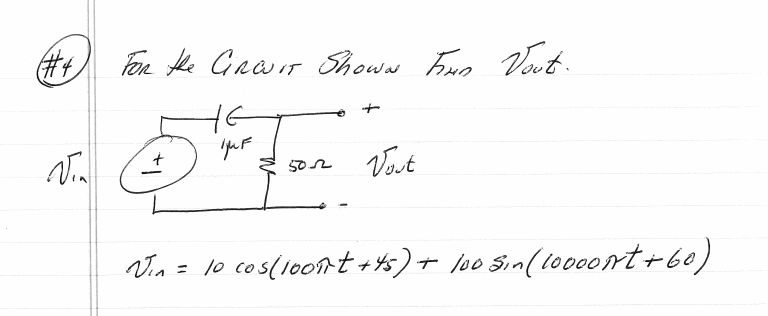 #4 FOR the CIRCUIT Shown FIND Vout.
+
1µF
Vin + 50Ω Vout
-
Vin = 10 cos(100πt + 45) + 100 sin(10000πt + 60)